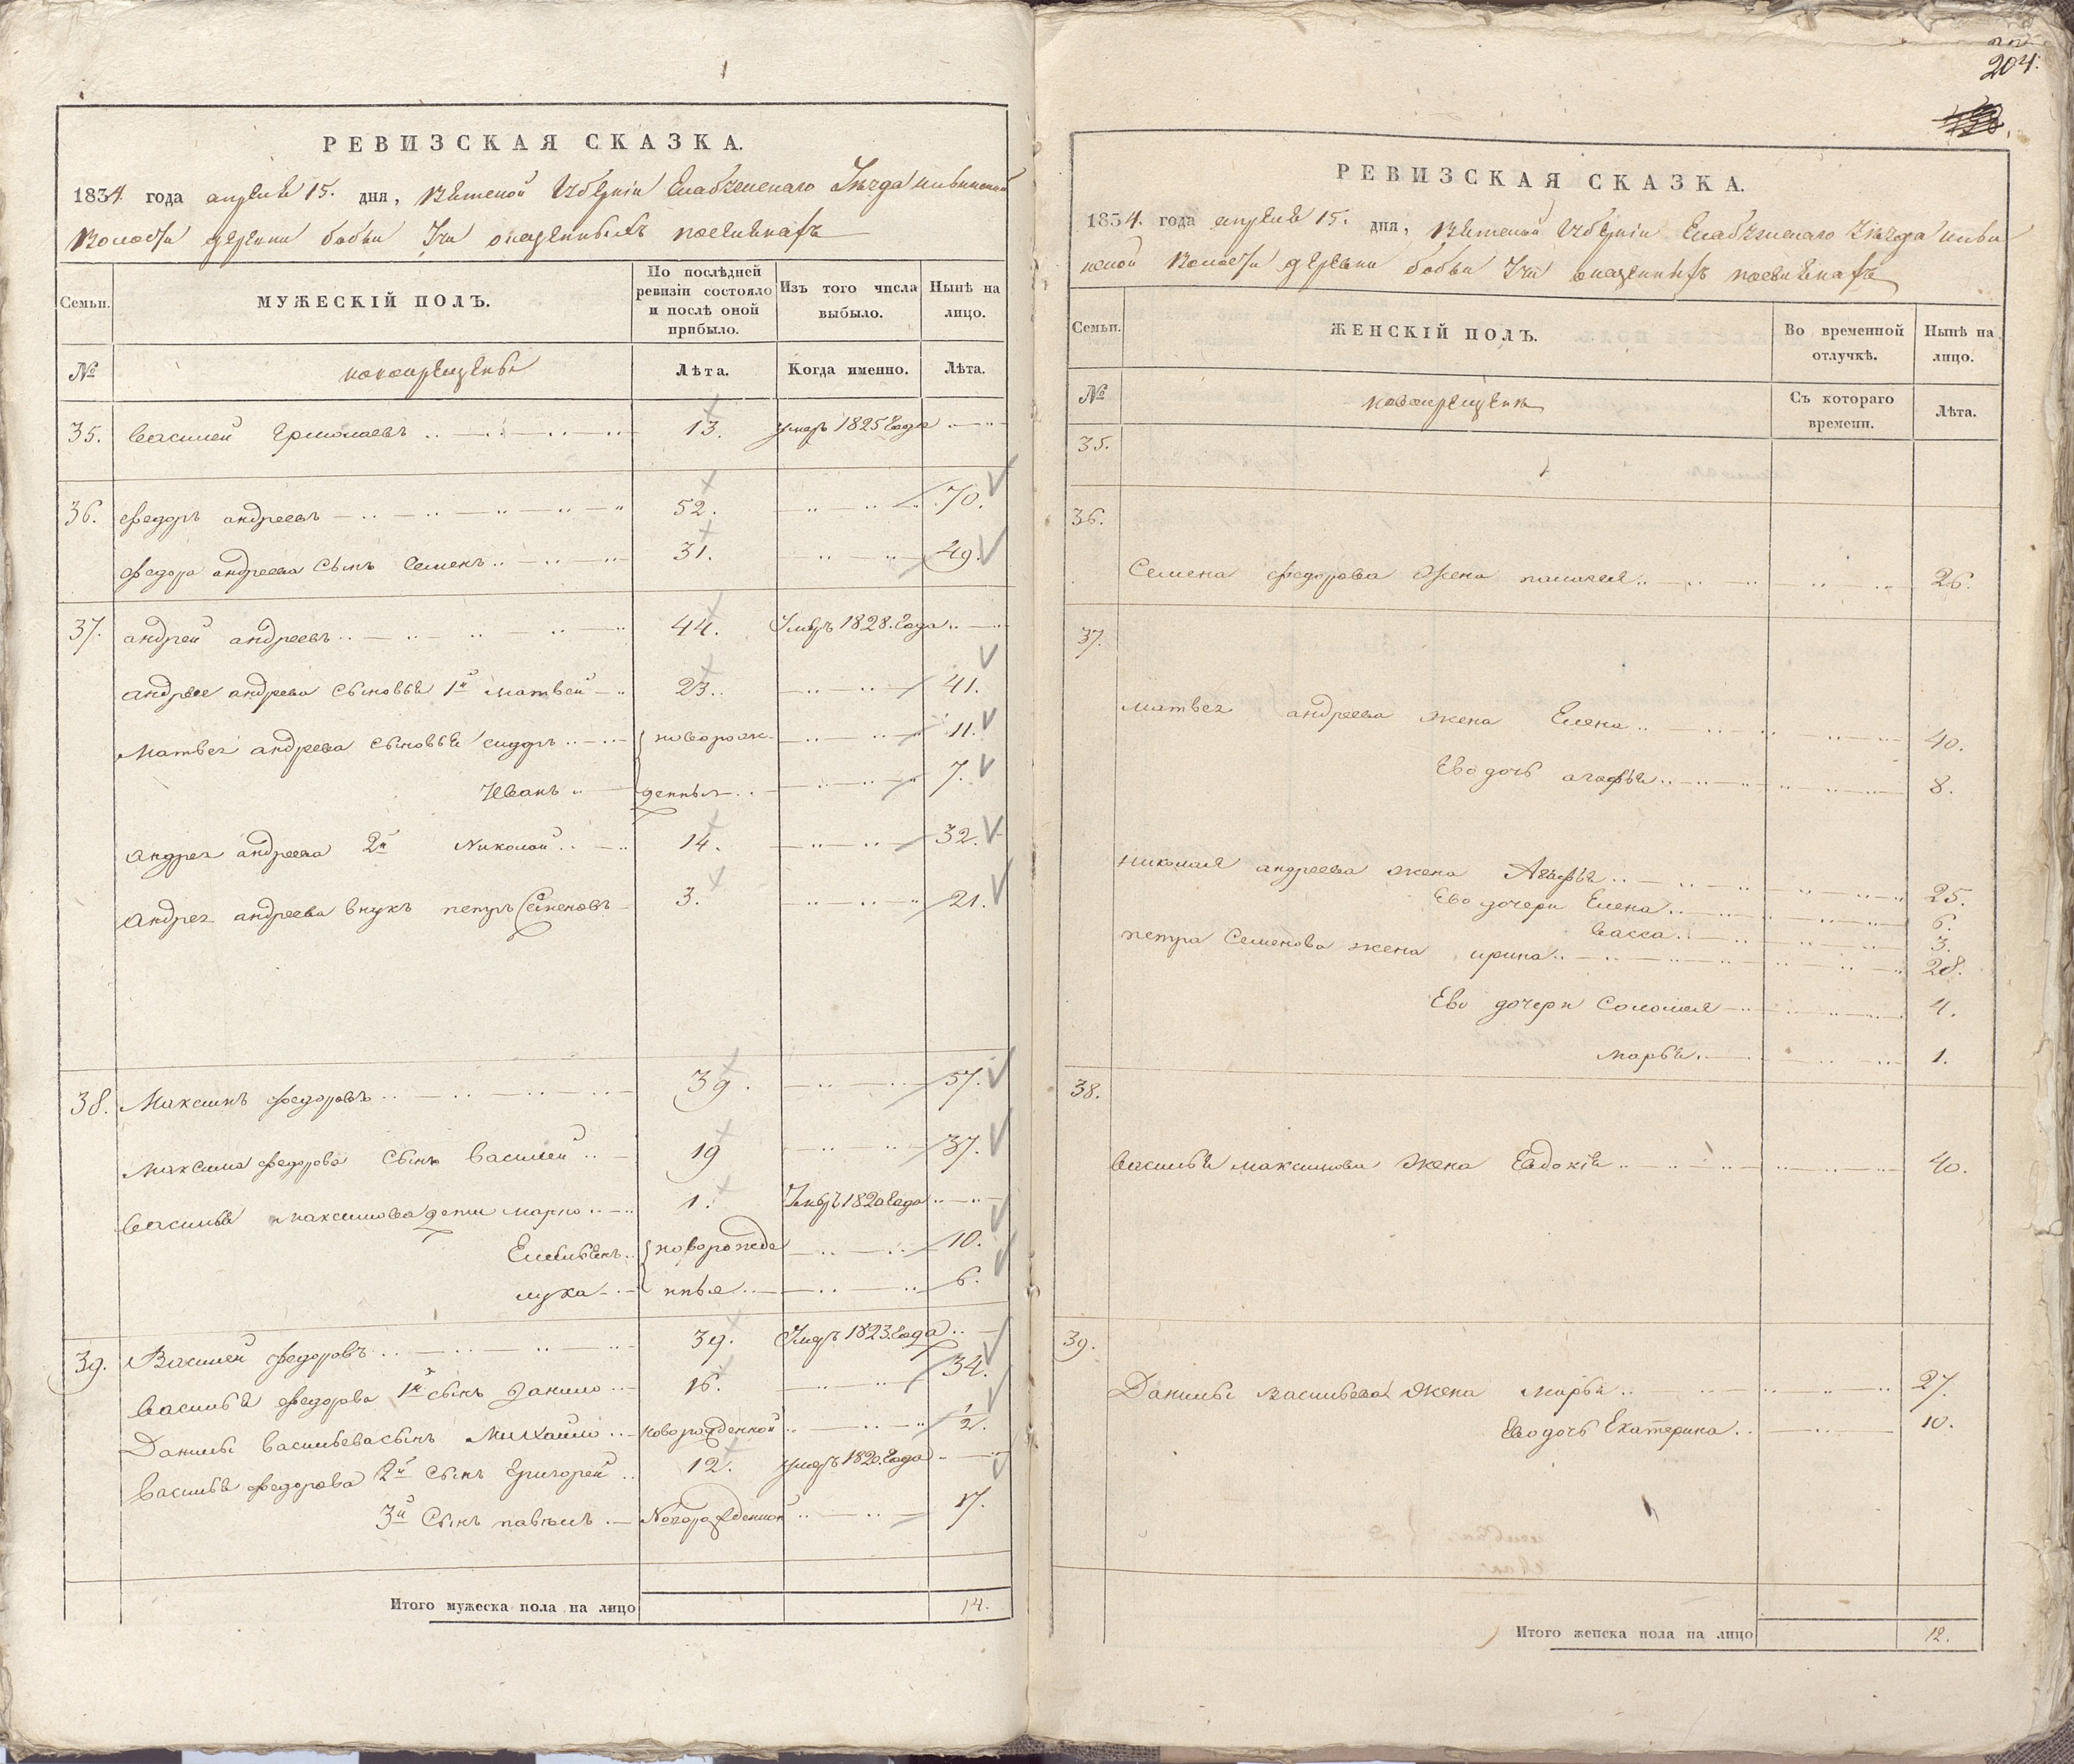 РЕВИЗСКАЯ СКАЗКА.
1834 года апреля 15. дня, Вятской Губернiи Елабужскаго Уезда
Волости деревни бобьи Учи поселенахъ
Семьи.
МУЖЕСКIЙ ПОЛЪ.
По послѣдней ревизiи состояло и послѣ оной прибыло.
Изъ того числа выбыло.
Нынѣ на лицо.
№
новокрещены
Лѣта.
Когда именно.
Лѣта.
35. Василей Ермолаевъ 13. умеръ 1825 Года
36. Федоръ андреевъ 52. 70.
Федора андреева Сынъ Семенъ 31. 49.
37. андрей андреевъ 44. Умеръ 1828. Года
андрея андреева сыновья 1й матвей 23. 41.
Матвея андреева сыновья сидоръ новорож- 11.
Иванъ денныя 7.
андрея андреева 2й Николай 14. 32.
андрея андреева внукъ петръ Семеновъ 3. 21.
38. Максимъ федоровъ 39. 57.
максима федорова сынъ василей 19 37.
василья максимова дети марко 1. Умеръ 1820 Года
Емельянъ новорожде 10.
лука нныя 6.
39. Василей федоровъ 39. Умеръ 1823. Года
василья федорова 1й сынъ Данило 16. 34.
Данилы васильева сынъ Михайло новорожденной 1/2.
василья федорова 2й сынъ Григорей 12. умеръ 1820. Года
3й Сынъ павелъ Новорожденной 17.
Итого мужеска пола на лицо 14.
204.
РЕВИЗСКАЯ СКАЗКА.
1834. года апреля 15. дня, Вятской Губернiи Елабужскаго Уезда
Волости деревни бобьи Учи поселенахъ
Семьи.
ЖЕНСКIЙ ПОЛЪ.
Во временной отлучкѣ.
Нынѣ на лицо.
№
новокрещены
Съ котораго времени.
Лѣта.
35.
36.
Семена федорова жена пелагея 26.
37.
матвея андреева жена Елена 40.
Ево дочь агафья 8.
николая андреева жена Агафья 25.
Ево дочери Елена 6.
васса 3.
петра Семенова жена ирина 28.
Ево дочери Соломея 4.
марья 1.
38.
василья максимова жена Евдокiя 40.
39.
Данилы васильева жена марья 27.
Ево дочь Екатерина 10.
Итого женска пола на лицо 12.